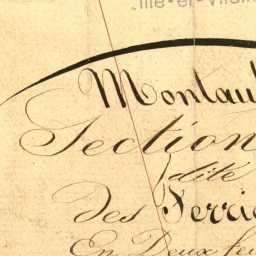 Ille-et-Vilaine
Montau
Section
dite
des Ferri
En Deux feu